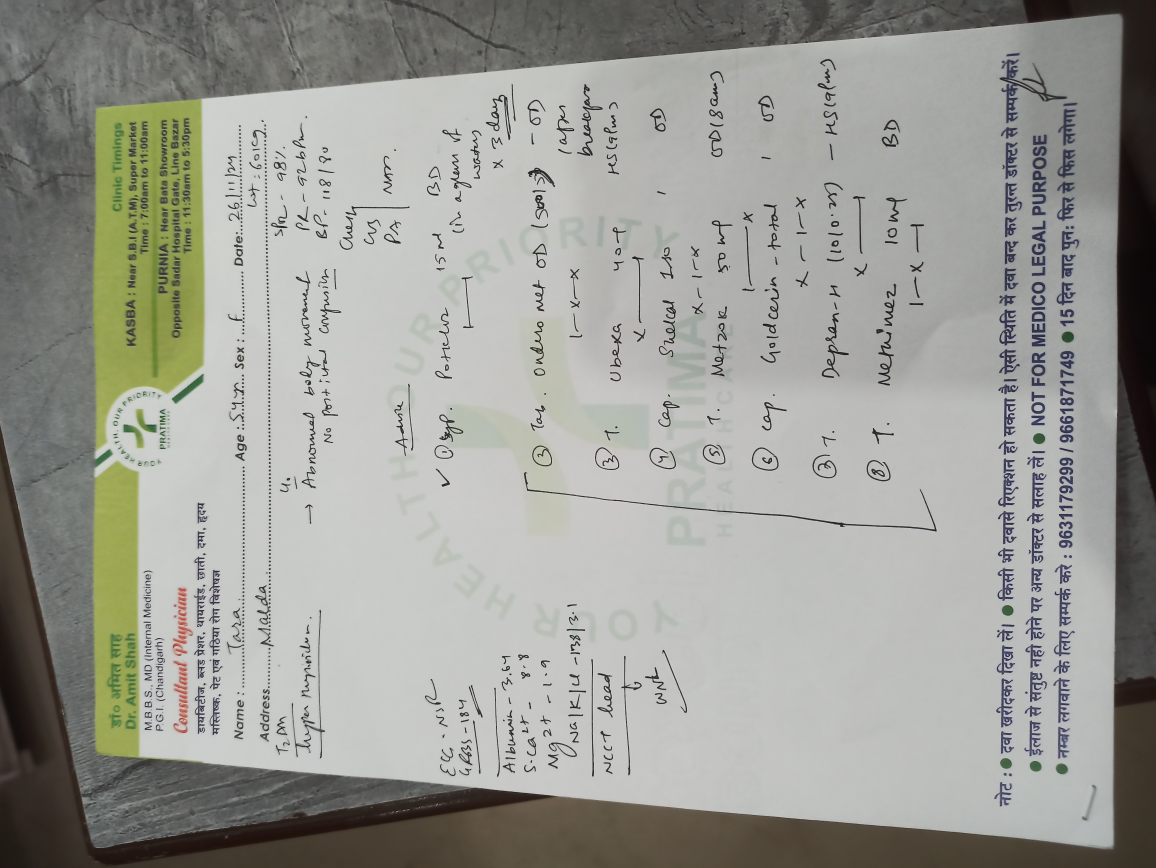 डॉ० अमित साह
Dr. Amit Shah
M.B.B.S., MD (Internal Medicine)
P.G.I. (Chandigarh)
Consultant Physician
डायबिटीज, ब्लड प्रेशर, थायराईड, छाती, दमा, हृदय
मस्तिष्क, पेट एवं गठिया रोग विशेषज्ञ
YOUR HEALTH, OUR PRIORITY
PRATIMA
HEALTHCARE
Clinic Timings
KASBA : Near S.B.I (A.T.M), Super Market
Time : 7:00am to 11:00am
PURNIA : Near Bata Showroom
Opposite Sadar Hospital Gate, Line Bazar
Time : 11:30am to 5:30pm
Name : Tara Age : 54yr Sex : F Date: 26/11/24
Address Malda Wt: 60kg
T2DM
→ Abnormal body movement
No Postictal Confusion
98%
PR - 92bpm.
BP - 118/80
Chest
CVS
PA
ECG - NSR
GRBS - 184
Albumin - 3.64
S. Ca2+ - 8.8
Mg2+ - 1.9
Na/K/Cl - 138/3.1
NCCT head
WNL
Advice
① Syp. 15 ml BD
(in a glass of water)
x 3 days
② Tab. met OD (500) - OD
1-x-x (after breakfast)
③ T. 40 HS (9pm)
x 1
④ Cap. Shelcal 1 OD
x-1-x
⑤ T. Metzok 50 mg OD (8am)
1 x
⑥ Cap. Goldcerin-total 1 OD
x-1-x
T. Depran-H (10/0.25) - HS (9pm)
x 1
⑧ T. 10mg BD
1-x-1
YOUR HEALTH OUR PRIORITY
PRATIMA
HEALTHCARE
नोट : ● दवा खरीदकर दिखा लें। ● किसी भी दवासे रिएक्शन हो सकता है। ऐसी स्थिति में दवा बन्द कर तुरन्त डॉक्टर से सम्पर्क करें।
● ईलाज से संतुष्ट नही होने पर अन्य डॉक्टर से सलाह लें। ● NOT FOR MEDICO LEGAL PURPOSE
● नम्बर लगवाने के लिए सम्पर्क करे : 9631179299 / 9661871749 ● 15 दिन बाद पुन: फिर से फिस लगेगा।